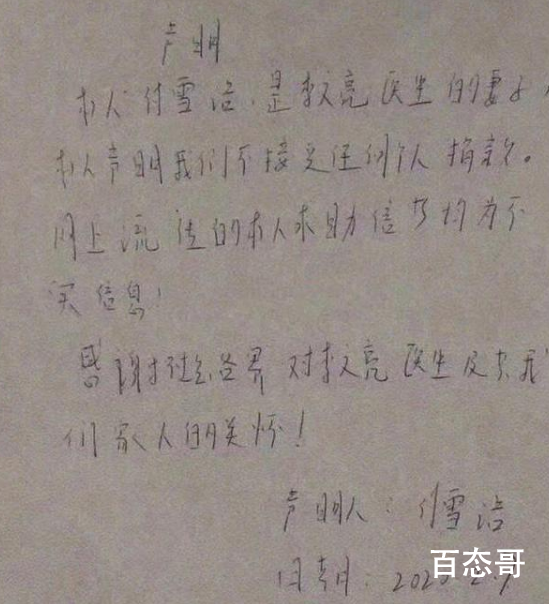 声明
本人付雪洁,是李文亮医生的妻子,
本人声明我们不接受任何个人捐款。
网上流传的本人求助信息均为不
实信息!
感谢社会各界对李文亮医生及其我
们家人的关怀!
声明人:付雪洁
日期:2020.2.7
百态哥